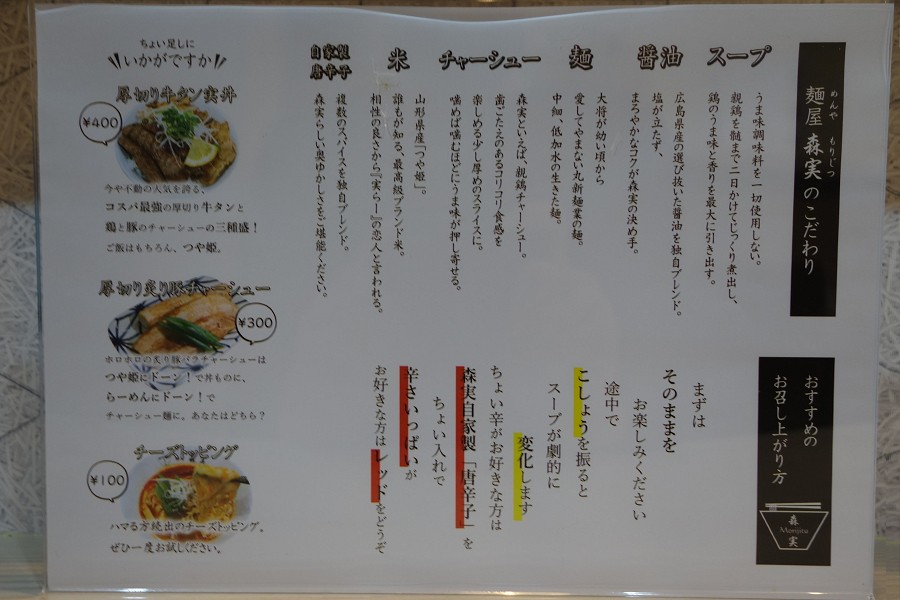 麺屋 森実のこだわり
めんや もりじつ
スープ
うま味調味料を一切使用しない。
親鶏を髄まで二日かけてじっくり煮出し、
鶏のうま味と香りを最大に引き出す。
醤油
広島県産の選び抜いた醤油を独自ブレンド。
塩が立たず、
まろやかなコクが森実の決め手。
麺
大将が幼い頃から
愛してやまない丸新麺業の麺。
中細、低加水の生きた麺。
チャーシュー
森実といえば、親鶏チャーシュー。
歯ごたえのあるコリコリ食感を
楽しめる少し厚めのスライスに。
噛めば噛むほどにうま味が押し寄せる。
米
山形県産「つや姫」。
誰もが知る、最高級ブランド米。
相性の良さから『実らー』の恋人と言われる。
自家製
唐辛子
複数のスパイスを独自ブレンド。
森実らしい奥ゆかしさをご堪能ください。
おすすめの
お召し上がり方
森
Morijitsu
実
まずは
そのままを
お楽しみください
途中で
こしょうを振ると
スープが劇的に
変化します
ちょい辛がお好きな方は
森実自家製「唐辛子」を
ちょい入れで
辛さいっぱいが
お好きな方はレッドをどうぞ
ちょい足しに
いかがですか
厚切り牛タン実丼
¥400
今や不動の人気を誇る、
コスパ最強の厚切り牛タンと
鶏と豚のチャーシューの三種盛！
ご飯はもちろん、つや姫。
厚切り炙り豚チャーシュー
¥300
ホロホロの炙り豚バラチャーシューは
つや姫にドーン！で丼ものに、
らーめんにドーン！で
チャーシュー麺に、あなたはどちら？
チーズトッピング
¥100
ハマる方続出のチーズトッピング。
ぜひ一度お試しください。